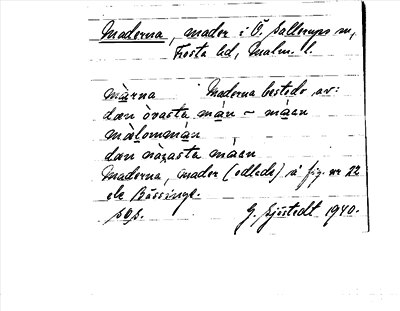 Maderna, mader i Ö. Sallerups sn,
Frosta hd, Malm. l.
màrna Maderna bestodo av:
dæn òvasta mán ~ máen
mæ̀lommán
dæn nàʒasta máen
Maderna, mader (odlade) å fig. nr 22
Bässinge.
G. Sjöstedt 1940.